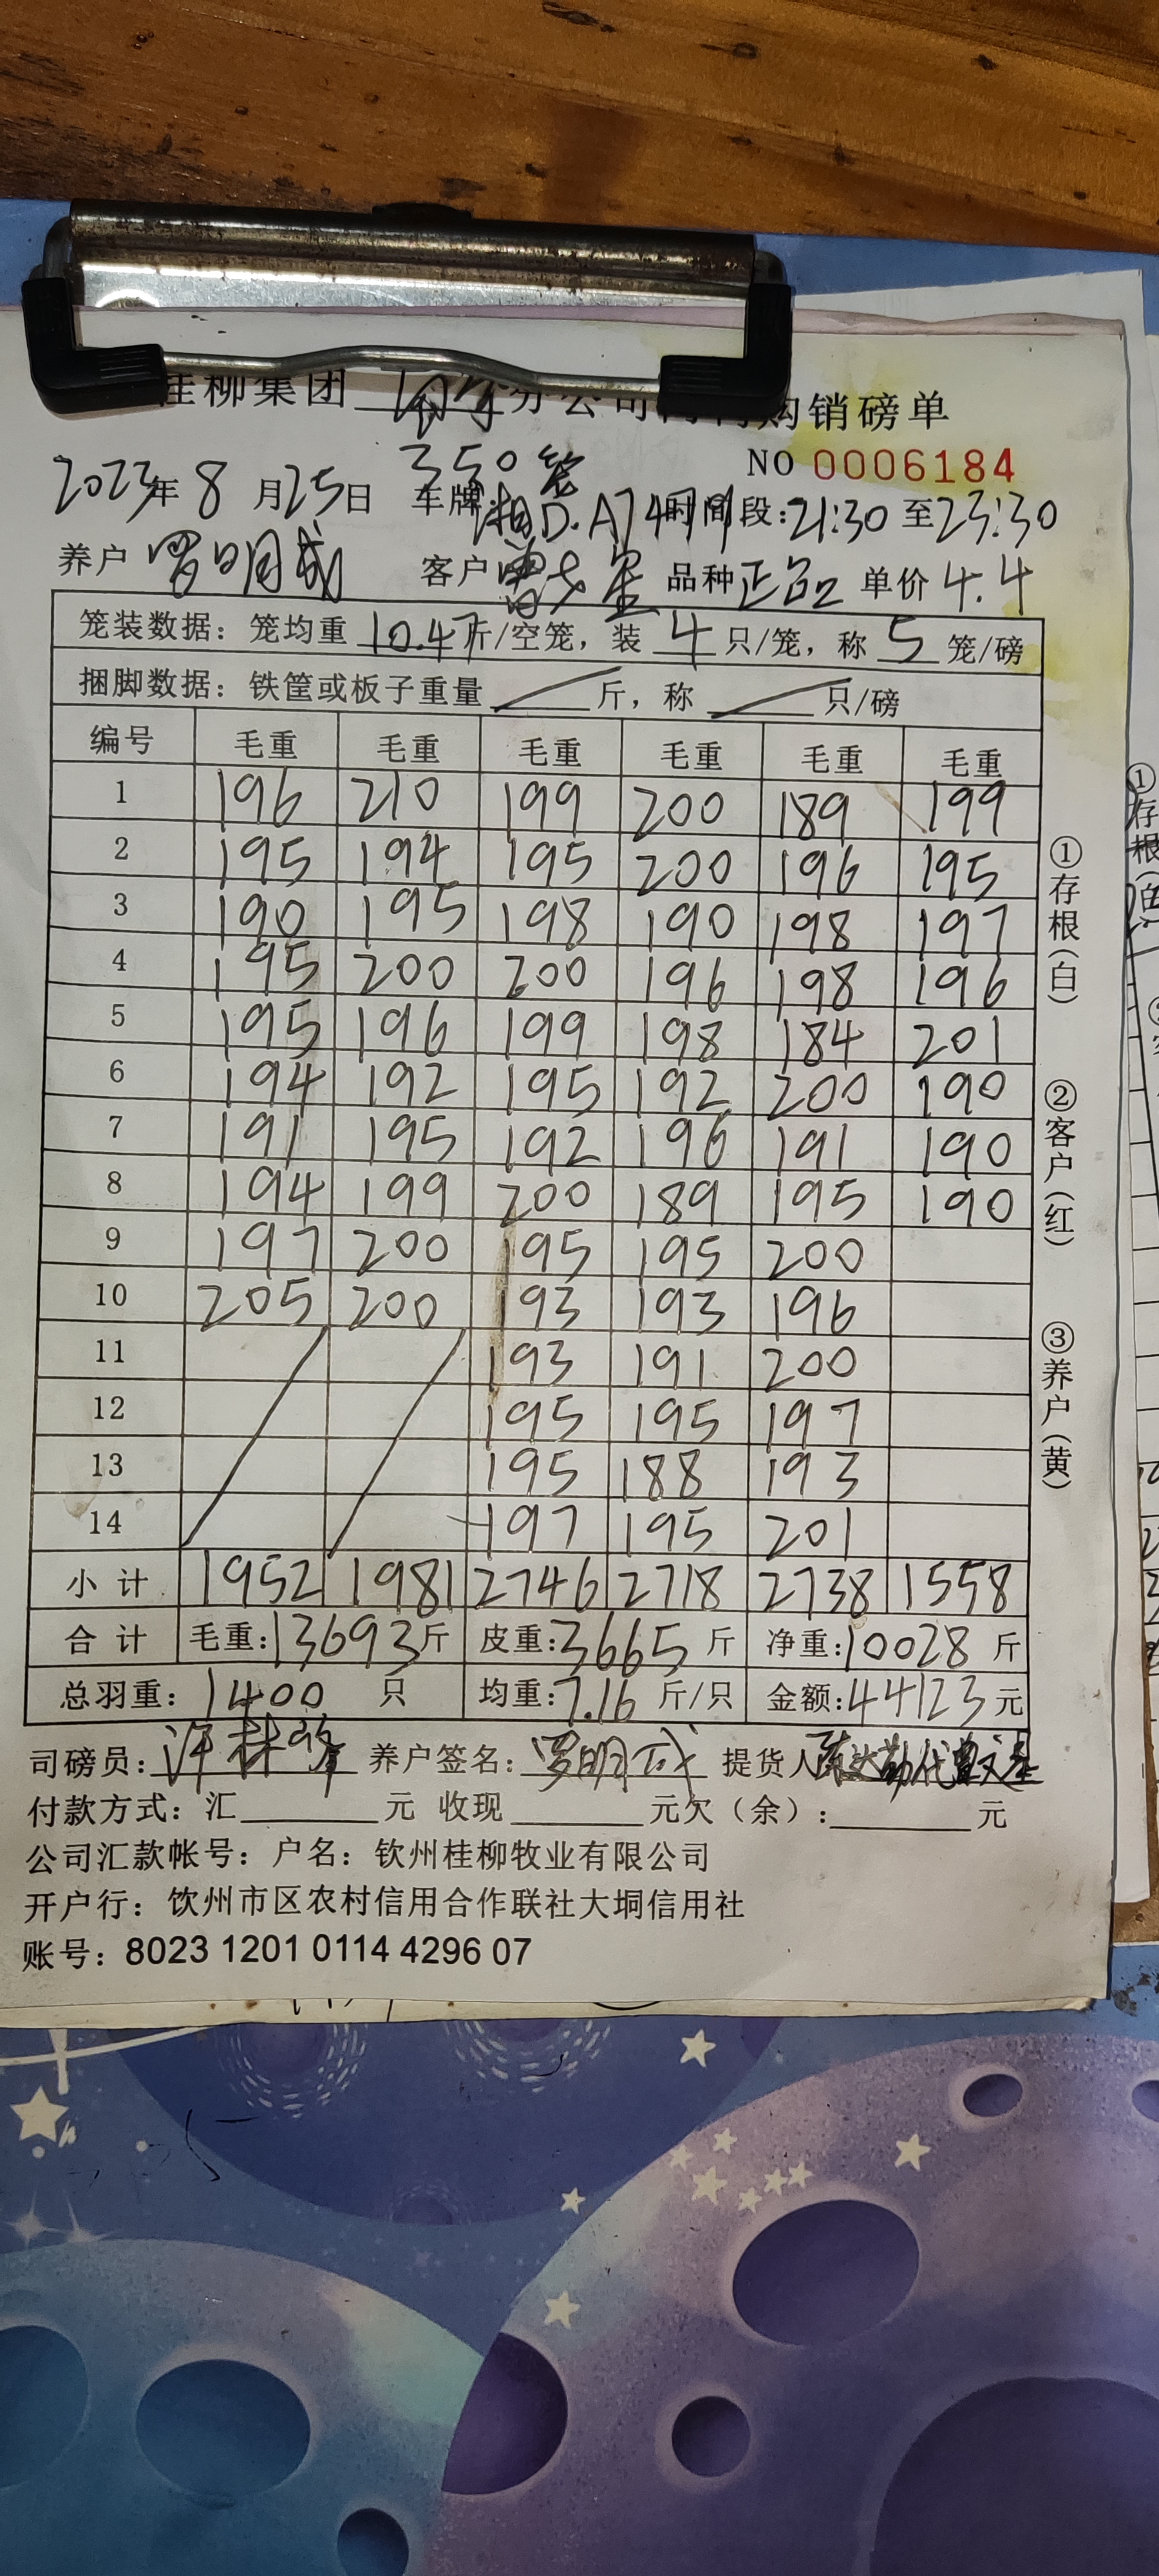 桂柳集团 分公司 购销磅单
350笼 NO 0006184
2023年8月25日 车牌湘D.A74 时间段:21:30至23:30
养户 罗明成 客户 品种 正品 单价 4.4
笼装数据：笼均重 10.47斤/空笼，装 4 只/笼，称 5 笼/磅
捆脚数据：铁筐或板子重量 斤，称 只/磅
编号 毛重 毛重 毛重 毛重 毛重 毛重
1 196 210 199 200 189 199
2 195 194 195 200 196 195
3 190 195 198 190 198 197
4 195 200 200 196 198 196
5 195 196 199 198 184 201
6 194 192 195 192 200 190
7 191 195 192 196 191 190
8 194 199 200 189 195 190
9 197 200 195 195 200
10 205 200 193 193 196
11 193 191 200
12 195 195 197
13 195 188 193
14 197 195 201
小计 1952 1981 2746 2718 2738 1558
合计 毛重:13693斤 皮重:3665斤 净重:10028斤
总羽重：1400 只 均重:7.16 斤/只 金额:44123元
司磅员: 养户签名:罗明成 提货人
付款方式：汇 元 收现 元欠（余）: 元
公司汇款帐号：户名：钦州桂柳牧业有限公司
开户行：饮州市区农村信用合作联社大垌信用社
账号：8023 1201 0114 4296 07
①存根(白) ②客户(红) ③养户(黄)
①存根